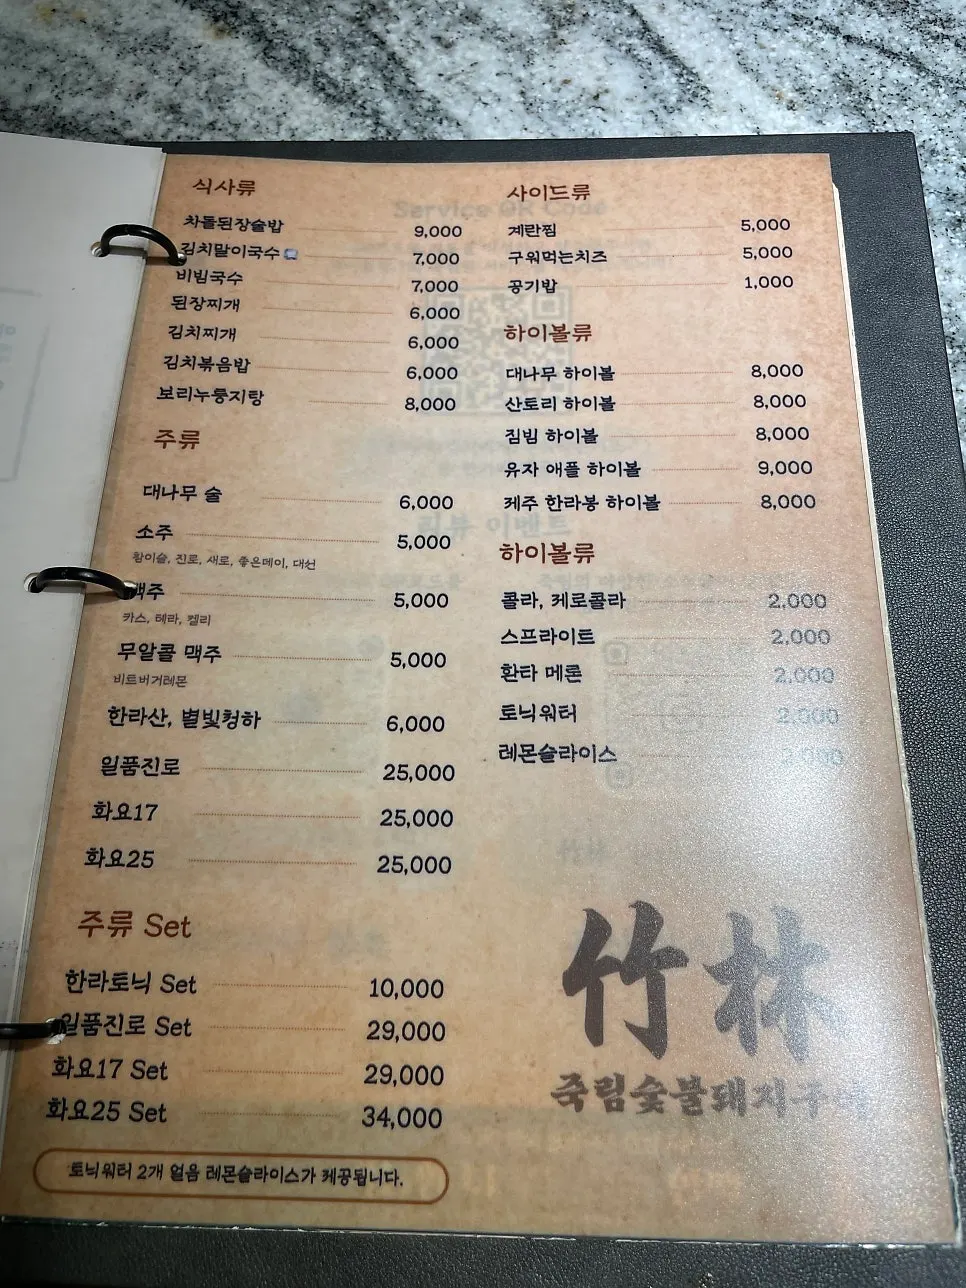 식사류
차돌된장술밥 9,000
김치말이국수 7,000
비빔국수 7,000
된장찌개 6,000
김치찌개 6,000
김치볶음밥 6,000
보리누룽지탕 8,000
주류
대나무 술 6,000
소주 5,000
참이슬, 진로, 새로, 좋은데이, 대선
맥주 5,000
카스, 테라, 켈리
무알콜 맥주 5,000
비트버거레몬
한라산, 별빛청하 6,000
일품진로 25,000
화요17 25,000
화요25 25,000
주류 Set
한라토닉 Set 10,000
일품진로 Set 29,000
화요17 Set 29,000
화요25 Set 34,000
토닉워터 2개 얼음 레몬슬라이스가 제공됩니다.
사이드류
계란찜 5,000
구워먹는치즈 5,000
공기밥 1,000
하이볼류
대나무 하이볼 8,000
산토리 하이볼 8,000
짐빔 하이볼 8,000
유자 애플 하이볼 9,000
제주 한라봉 하이볼 8,000
하이볼류
콜라, 제로콜라 2,000
스프라이트 2,000
환타 메론 2,000
토닉워터 2,000
레몬슬라이스
竹林
죽림숯불돼지구이
Service QR Code
리뷰 이벤트